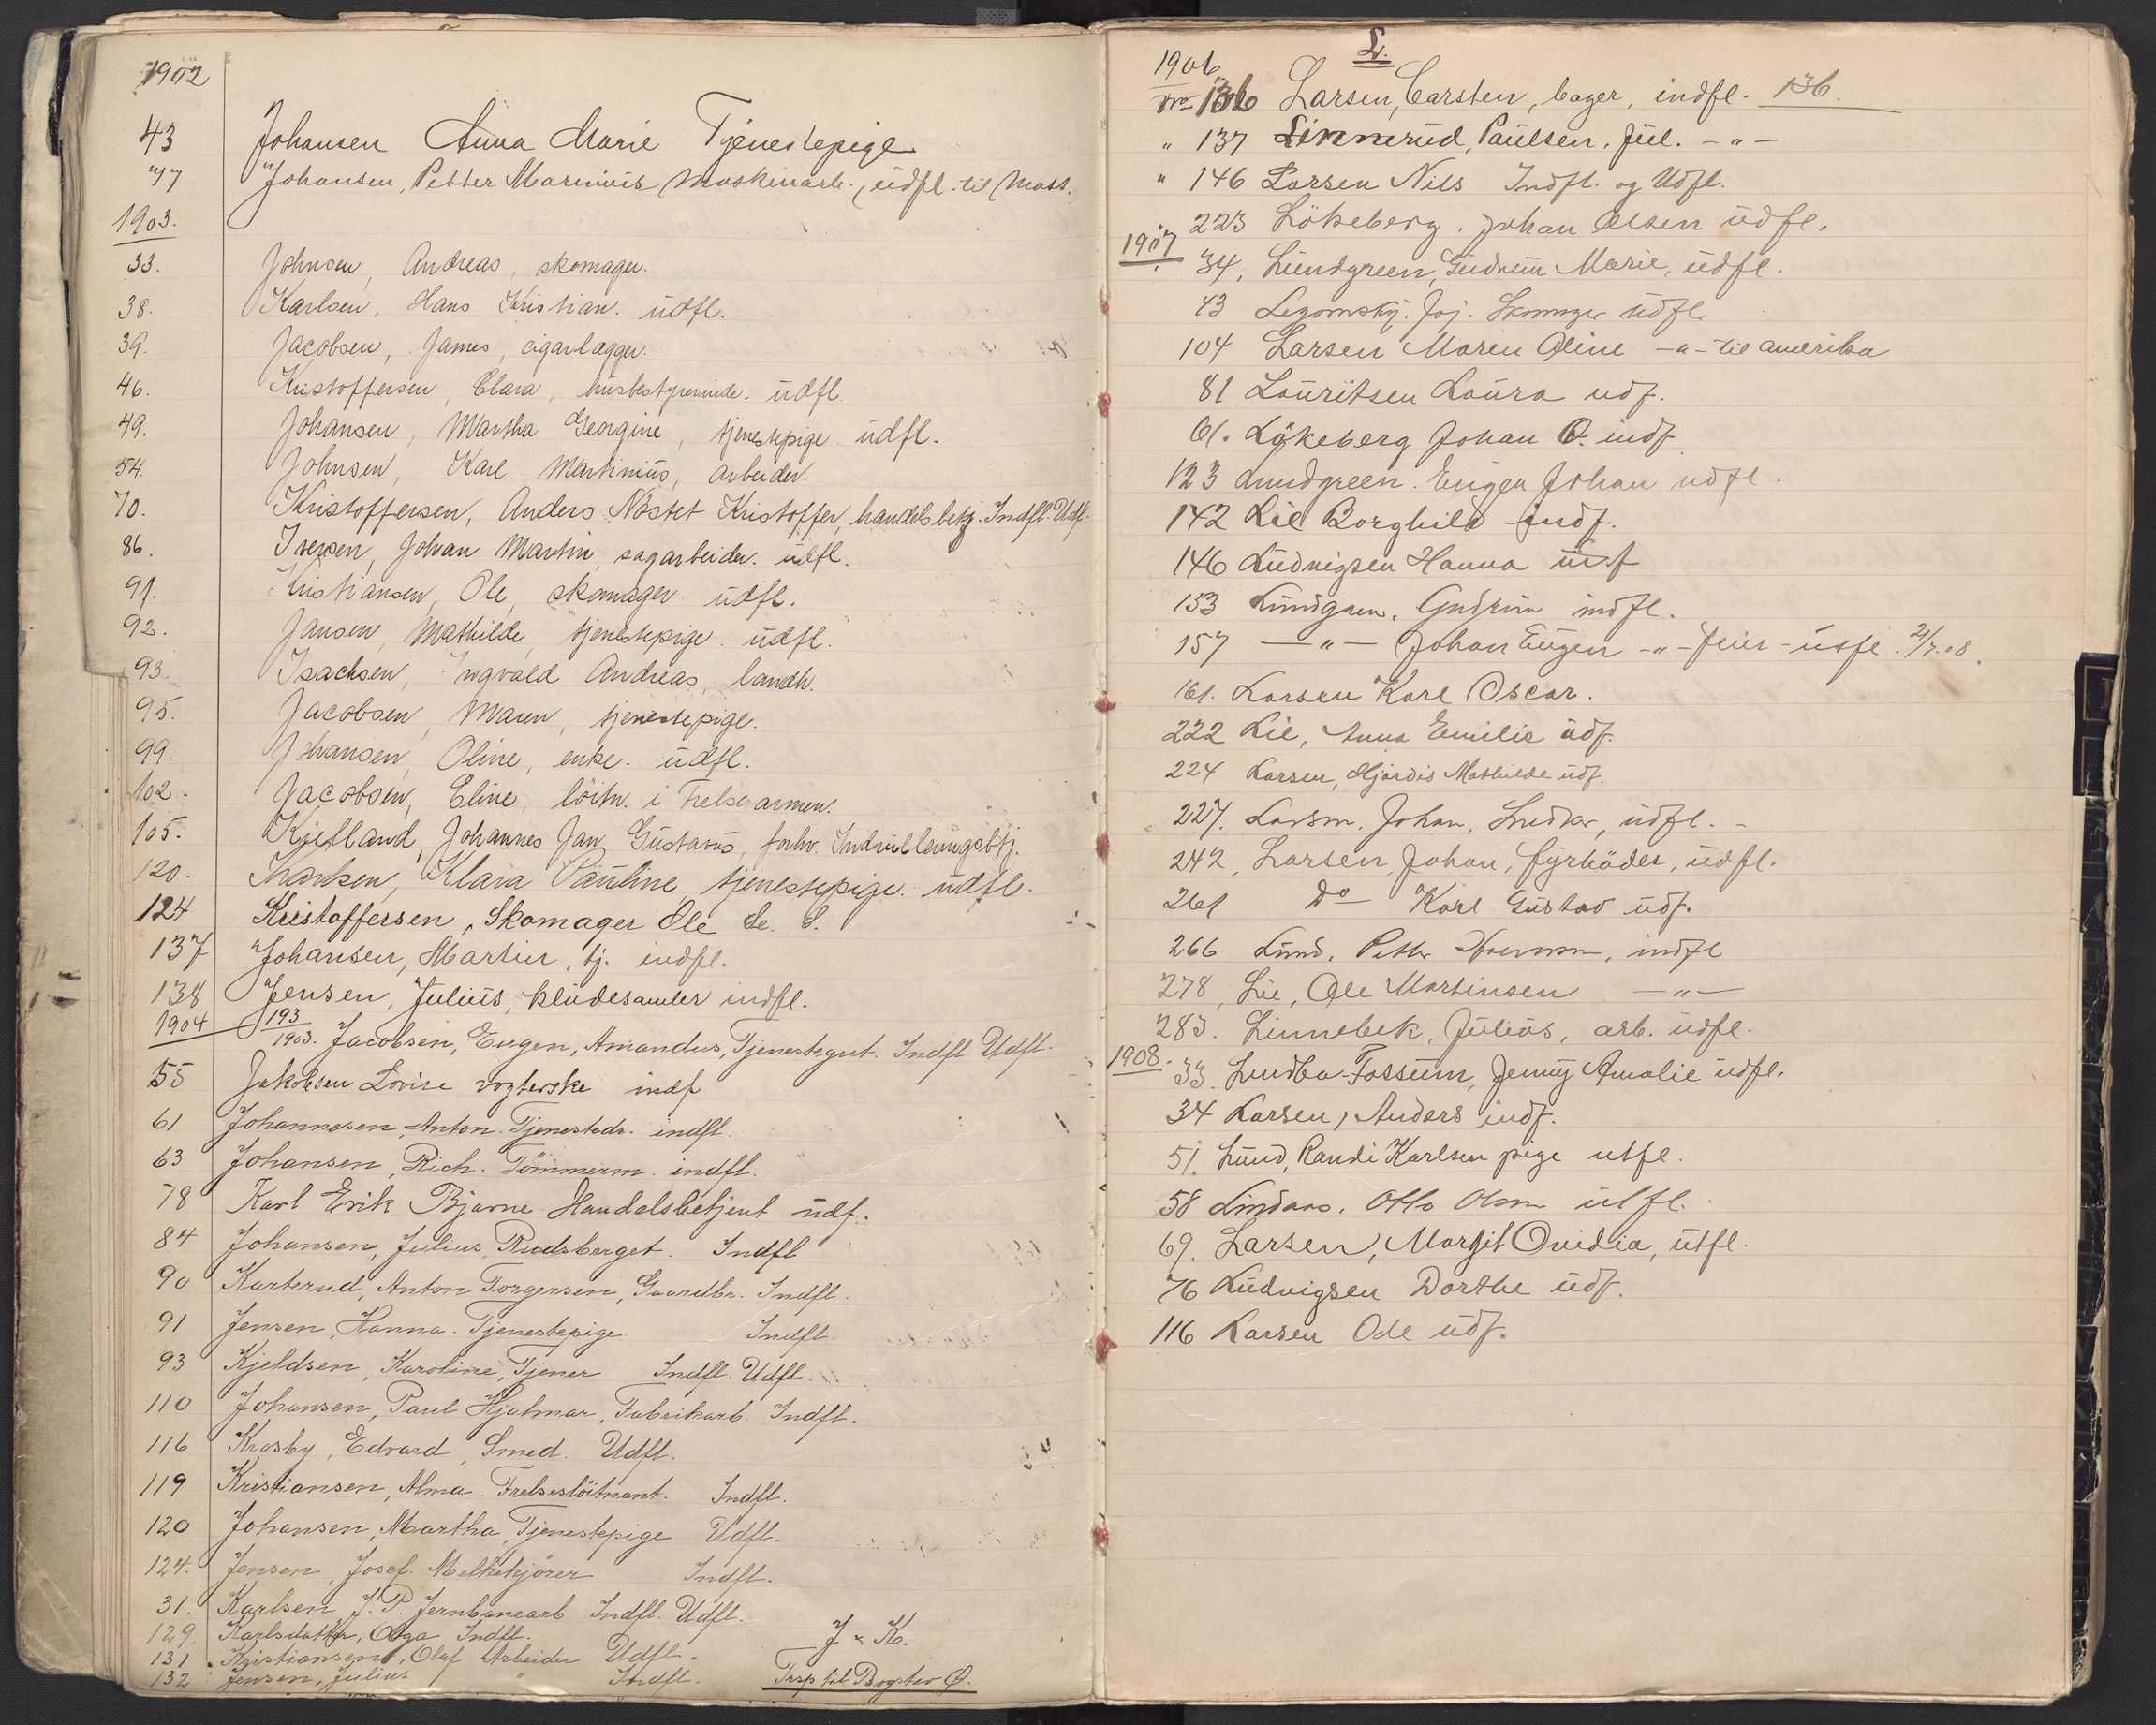 1902
43 Johansen Anna Marie Tjenestepige
47 Johansen, Petter Marinius Maskinarb., üdfl. til Moss.
1903.
33. Johnsen, Andreas, skomager.
38. Karlsen, Hans Kristian. üdfl.
39. Jacobsen, James, cigarlægger.
46. Kristoffersen, Clara, husbestyrerinde. üdfl.
49. Johansen, Martha Georgine, tjenestepige üdfl.
54. Johnsen, Karl Martinius, arbeider.
70. Kristoffersen, Anders Nöstet Kristoffer, handelsbetj. Indfl. Udfl.
86. Iversen, Johan Martin, sagarbeider. üdfl.
91. Kristiansen, Ole, skomager üdfl.
92. Jansen, Mathilde, tjenestepige. üdfl.
93. Isachsen, Ingvald Andreas, landh.
95. Jacobsen, Maren, tjenestepige.
99. Johansen, Oline, enke. üdfl.
102. Jacobsen, Eline, löitn. i Frelserarmen.
105. Kjelland, Johannes Jan Gustavus, forhv.
120. Karlsen, Klara Pauline, tjenestepige. üdfl.
124 Kristoffersen, Skomager Ole
137 Johansen, Martin, tj. indfl.
138 Jensen, Julius, klüdesamler indfl.
1904 193/1903. Jacobsen, Eugen, Amandus, Tjenestegut. Indfl. Udfl.
55 Jakobsen Lovise vogterske indf
61 Johannesen, Anton. Tjenestedr. indfl.
63 Johansen, Rich. Tömmerm. indfl.
78 Karl Erik Bjarne Handelsbetjent üdf.
84 Johansen, Julius, Rudsberget. Indfl
90 Karterud, Anton Torgersen, Gaardbr. Indfl.
91 Jensen, Hanna. Tjenestepige. Indfl.
93 Kjeldsen, Karoline, Tjener Indfl. Udfl.
110 Johansen, Paul Hjalmar, Fabrikarb. Indfl.
116 Krosby, Edvard, Smed. Udfl.
119 Kristiansen, Alma. Frelseslöitnant. Indfl.
120 Johansen, Martha, Tjenestepige Udfl.
124. Jensen, Josef. Melkekjörer Indfl.
31. Karlsen, J. P. Jernbanearb. Indfl. Udfl.
129. Karlsdatter, Olga Indfl.
131. Kristiansen, Olaf Arbeider Udfl.
132 Jensen, Julius " Indfl.
J & K.
Trsp til Bogstav Ø.
L.
1906
No 136 Larsen, Carsten, bager, indfl. 136.
" 137 Linnerüd, Paülsen, Jül. - " -
" 146 Larsen Nils Indfl. og Udfl.
" 223 Lökeberg, Johan Olsen üdfl.
1907 34, Lündgreen, Güdrün Marie, üdfl.
43 Legomsky. Joj. Skomager üdfl.
104 Larsen Maren Oline - " - til amerika
81 Lauritsen Laura udf.
61. Lökeberg Johan O. indf.
123 Lundgreen. Eügen Johan udfl.
142 Lie Borghild indf.
146 Ludvigsen Hanna
153 Lundgren, Gudrün indfl.
157 - " - Johan Eügen - " - feier - utfl. 21/7.08.
161. Larsen Karl Oscar.
222 Lie, Anna Emilie üdf.
224 Larsen, Hjördis Mathilde üdf.
227. Larsen, Johan, Snedker, üdfl.
242, Larsen, Johan, fyrböder, üdfl.
261 Do Karl Güstav üdf.
266 Lund, Petter Herman, indfl
278, Lie, Ole Martinsen - " -
283. Linnebek, Jüliüs, arb. üdfl.
1908. 33. Lundba-Fossüm, Jenny Amalie üdfl.
34 Larsen, Anders indf.
51. Lünd, Randi Karlsen pige utfl.
58 Lindaas, Otto Olsen utfl.
69. Larsen, Margit Ovidia, ütfl.
76 Lüdvigsen Dorthe üdf.
116 Larsen Ole üdf.